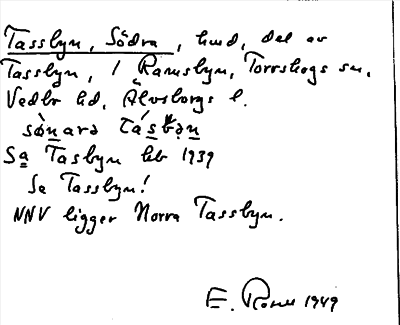 Tassbyn, Södra, hmd, del av
Tassbyn, 1 Ramsbyn, Torrskogs sn,
Vedbo hd, Älvsborgs l.
sø̀nara tásbən
Sa Tasbyn hb 1939
Se Tassbyn!
NNV ligger Norra Tassbyn.
E. 1949